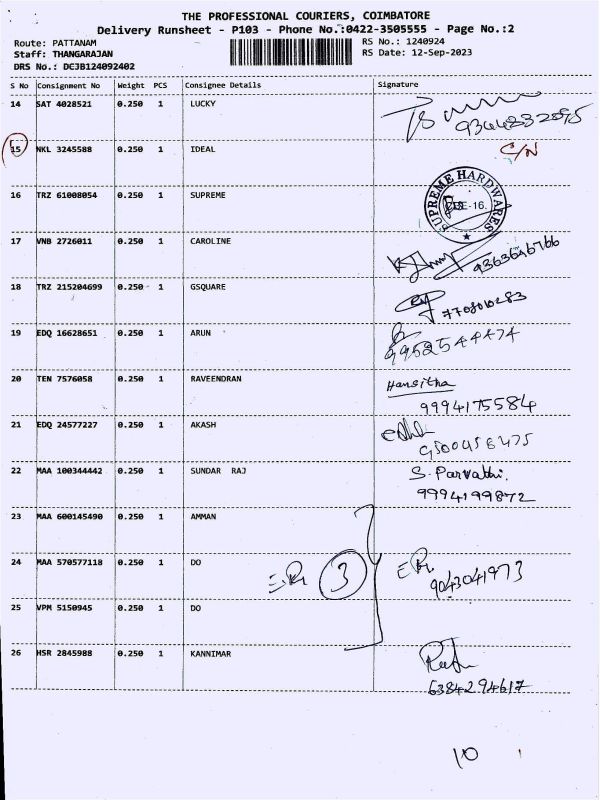 THE PROFESSIONAL COURIERS, COIMBATORE
Delivery Runsheet - P103 - Phone No.:0422-3505555 - Page No.:2
Route: PATTANAM
RS No.: 1240924
Staff: THANGARAJAN
RS Date: 12-Sep-2023
DRS No.: DCJB124092402
S No Consignment No Weight PCS Consignee Details Signature
14 SAT 4028521 0.250 1 LUCKY
15 NKL 3245588 0.250 1 IDEAL C/N
16 TRZ 61008054 0.250 1 SUPREME SUPREME HARDWARES CBE-16.
17 VNB 2726011 0.250 1 CAROLINE
18 TRZ 215204699 0.250 1 GSQUARE
19 EDQ 16628651 0.250 1 ARUN
9952544474
20 TEN 7576058 0.250 1 RAVEENDRAN Hansitha
9994175584
21 EDQ 24577227 0.250 1 AKASH
22 MAA 100344442 0.250 1 SUNDAR RAJ S. Parvathi.
9994199872
23 MAA 600145490 0.250 1 AMMAN
24 MAA 570577118 0.250 1 DO 3
9043041973
25 VPM 5150945 0.250 1 DO
26 HSR 2845988 0.250 1 KANNIMAR
6384294617
10